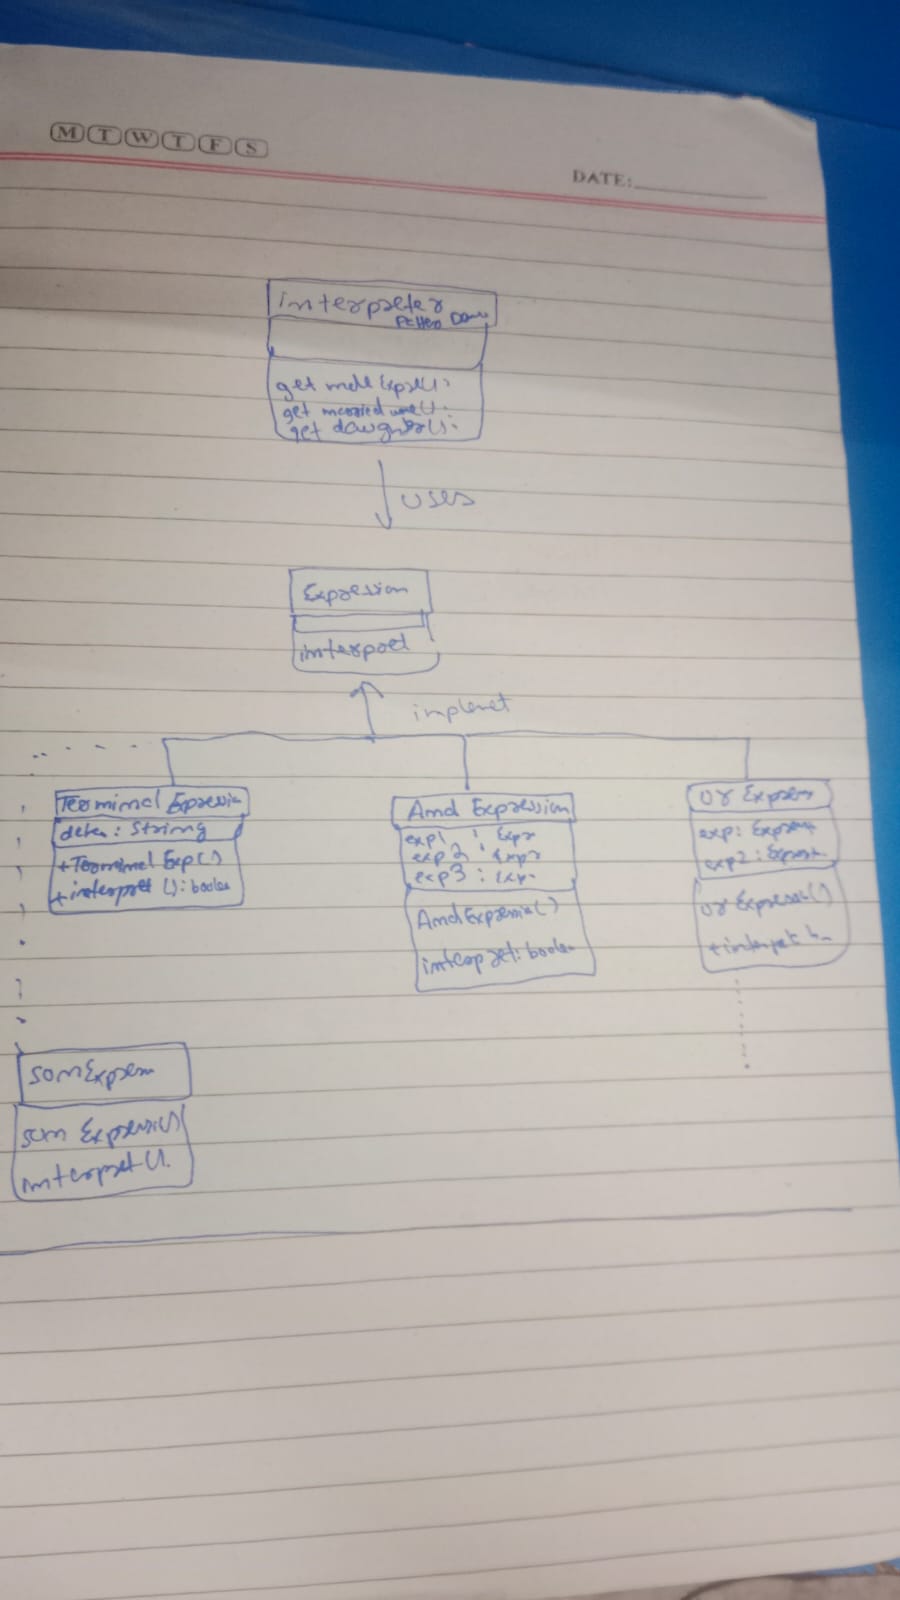 M T W T F S
DATE:
interpreter
Pattern Demo
get male Expr():
get married
get daughter():
uses
Expression
interpret
implemet
Terminal Expression
data: String
+Terminal Exp()
+interpret (): boolean
And Expression
exp1 : Expr
exp2 : Expr
exp3 : Exp.
And Expression()
interpret: boolean
or Express
exp: Express
exp2: Express
or Expression()
+interpret
som Express
som Expression()
interpret().